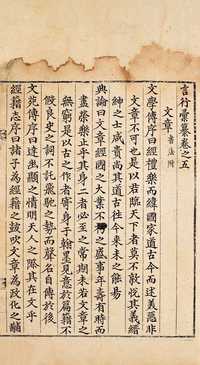 言行彙纂卷之五
文章 書法附
文學傳序曰經禮樂而緯國家道古今而述美惡非
文章不可也是以君臨天下者莫不敦悅其義縉
紳之士咸貴尚其道古往今來未之能易
典論曰文章經國之大業不朽之盛事年壽有時而
盡榮樂止乎其身二者必至之常期未若文章之
無窮是以古之作者寄身于翰墨見意於篇籍不
假良史之詞不託飛馳之勢而聲名自傳於後
文苑傳序曰達幽顯之情明天人之際其在文乎
經籍志序曰諸子為經籍之鼓吹文章為政化之黼